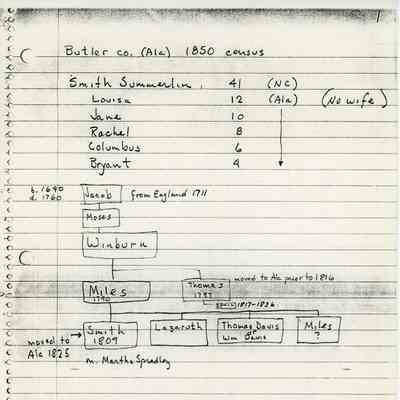 Butler co. (Ala) 1850 census
Smith Summerlin, 41 (NC)
Louisa 12 (Ala) (No wife)
Jane 10
Rachel 8
Columbus 6
Bryant 4
b. 1690
d. 1760
Jacob from England 1711
Moses
Winburn
Miles
1790
Thomas
moved to Ala prior to 1816
1817-1826
moved to
Ala 1825
Smith
1809
Lazaruth
Thomas Davis
or
Wm Davis
Miles
?
m. Martha Spradley